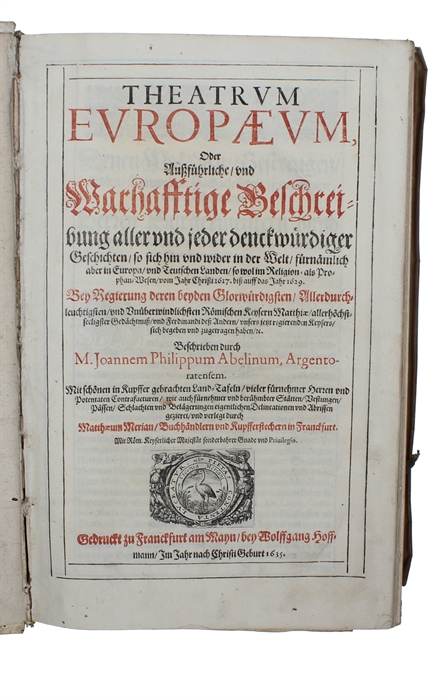 THEATRVM
EVROPÆVM,
Oder
Außführliche/vnd
Warhafftige Beschrei-
bung aller vnd jeder denckwürdiger
Geschichten/ so sich hin vnd wider in der Welt/ fürnämlich
aber in Europa/ vnd Teutschen Landen/ so wol im Religion- als Pro-
phan-Wesen/ vom Jahr Christi 1617. biß auff das Jahr 1629.
Bey Regierung deren beyden Glorwürdigsten/ Allerdurch-
leuchtigsten/ vnd Vnüberwindlichsten Römischen Keysern Matthiæ/ allerhöchst-
seeligster Gedächtnuß/ vnd Ferdinandi deß Andern/ vnsers jetzt regierenden Keysers/
sich begeben vnd zugetragen haben/ &c.
Beschrieben durch
M. Joannem Philippum Abelinum, Argento-
ratensem.
Mit schönen in Kupffer gebrachten Land-Tafeln/ vieler fürnehmer Herren vnd
Potentaten Contrafacturen/ wie auch fürnehmer vnd berühmbter Stätten/ Vestungen/
Pässen/ Schlachten vnd Belägerungen eigentlichen Delineationen vnd Abrissen
gezieret/ vnd verlegt durch
Matthæum Merian/ Buchhändlern vnd Kupfferstechern in Franckfurt.
Mit Röm. Keyserlicher Majestät sonderbahrer Gnade vnd Privilegio.
Gedruckt zu Franckfurt am Mayn/ bey Wolffgang Hoff-
mann/ Im Jahr nach Christi Geburt 1635.